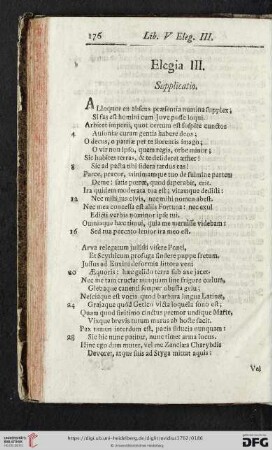 176 Lib. V Eleg. III.
Elegia III.
Supplicatio.
ALloquor en absens præsentia numina supplex;
Si fas est homini cum Jove posse loqui.
Arbiter imperii, quo certum est sospite cunctos
4 Ausoniæ curam gentis habere deos:
O decus, o patriæ per te florentis imago;
O vir non ipso, quem regis, orbe minor:
Sic habites terras, & te desideret æther:
8 Sic ad pacta tibi sidera tardus eas:
Parce, precor, minimamque tuo de fulmine partem
Deme: satis pœnæ, quod superabit, erit.
Ira quidem moderata tua est; vitamque dedisti:
12 Nec mihi jus civis, nec mihi nomen abest.
Nec mea concessa est aliis Fortuna: nec exul
Edicti verbis nominor ipse tui.
Omniaque hæc timui, quia me meruisse videbam:
16 Sed tua peccato lenior ira meo est.
Arva relegatum jussisti visere Ponti,
Et Scythicum profuga findere puppe fretum.
Jussus ad Euxini deformia littora veni
20 Æquoris: hæc gelido terra sub axe jacet.
Nec me tam cruciat nunquam sine frigore cælum,
Glebaque canenti semper obusta gelu;
Nesciaque est vocis quod barbara lingua Latinæ,
24 Grajaque quod Getico victa loquela sono est;
Quam quod finitimo cinctus premor undique Marte,
Vixque brevis tutum murus ab hoste facit.
Pax tamen interdum est, pacis fiducia nunquam:
28 Sic hic nunc patitur, nunc timet arma locus.
Hinc ego dum muter, vel me Zanclæa Charybdis
Devoret, atque suis ad Styga mittat aquis:
Vel
https://digi.ub.uni-heidelberg.de/diglit/ovidius1702/0186